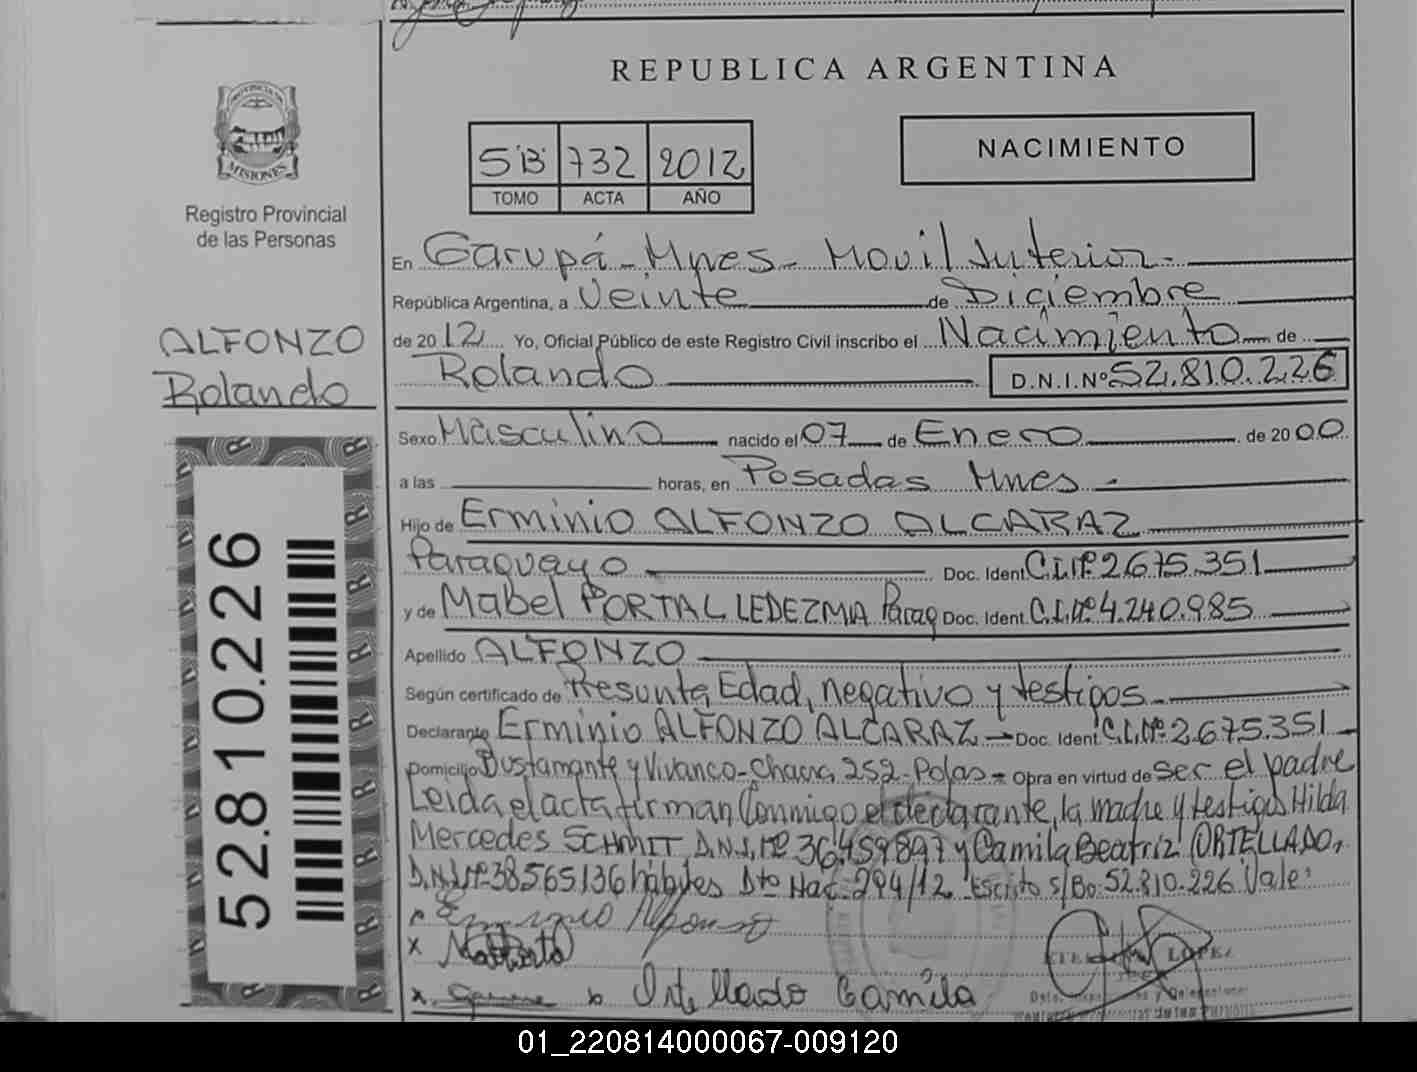 REPUBLICA ARGENTINA
PROVINCIA DE
MISIONES
Registro Provincial
de las Personas
5'B' 732 2012
TOMO ACTA AÑO
NACIMIENTO
En Garupá - Mnes - Movil Interior -
República Argentina, a Veinte de Diciembre
de 2012 Yo, Oficial Público de este Registro Civil inscribo el Nacimiento de
Rolando D.N.I.Nº 52.810.226
ALFONZO
Rolando
Sexo Masculino nacido el 07 de Enero de 2000
a las horas, en Posadas Mnes -
Hijo de Erminio ALFONZO ALCARAZ
Paraguayo Doc. Ident. C.I.Nº 2.675.351
y de Mabel PORTAL LEDEZMA Parag Doc. Ident. C.I.Nº 4.240.985
Apellido ALFONZO
Según certificado de Presunta Edad, negativo y testigos -
Declarante Erminio ALFONZO ALCARAZ - Doc. Ident. C.I.Nº 2.675.351
Domicilio Bustamante y Vivanco - Chacra 252 - Pdas - Obra en virtud de ser el padre
Leida el acta firman Conmigo el declarante, la madre y testigos Hilda
Mercedes SCHMIT D.N.I.Nº 36.459897 y Camila Beatriz ORTELLADO,
D.N.I.Nº 38565136 hábiles Dto Nac. 294/12 "Escrito s/Bo: 52.810.226 Vale"
Erminio Alfonzo
x
x Ortellado Camila
LOPEZ
52.810.226
01_220814000067-009120